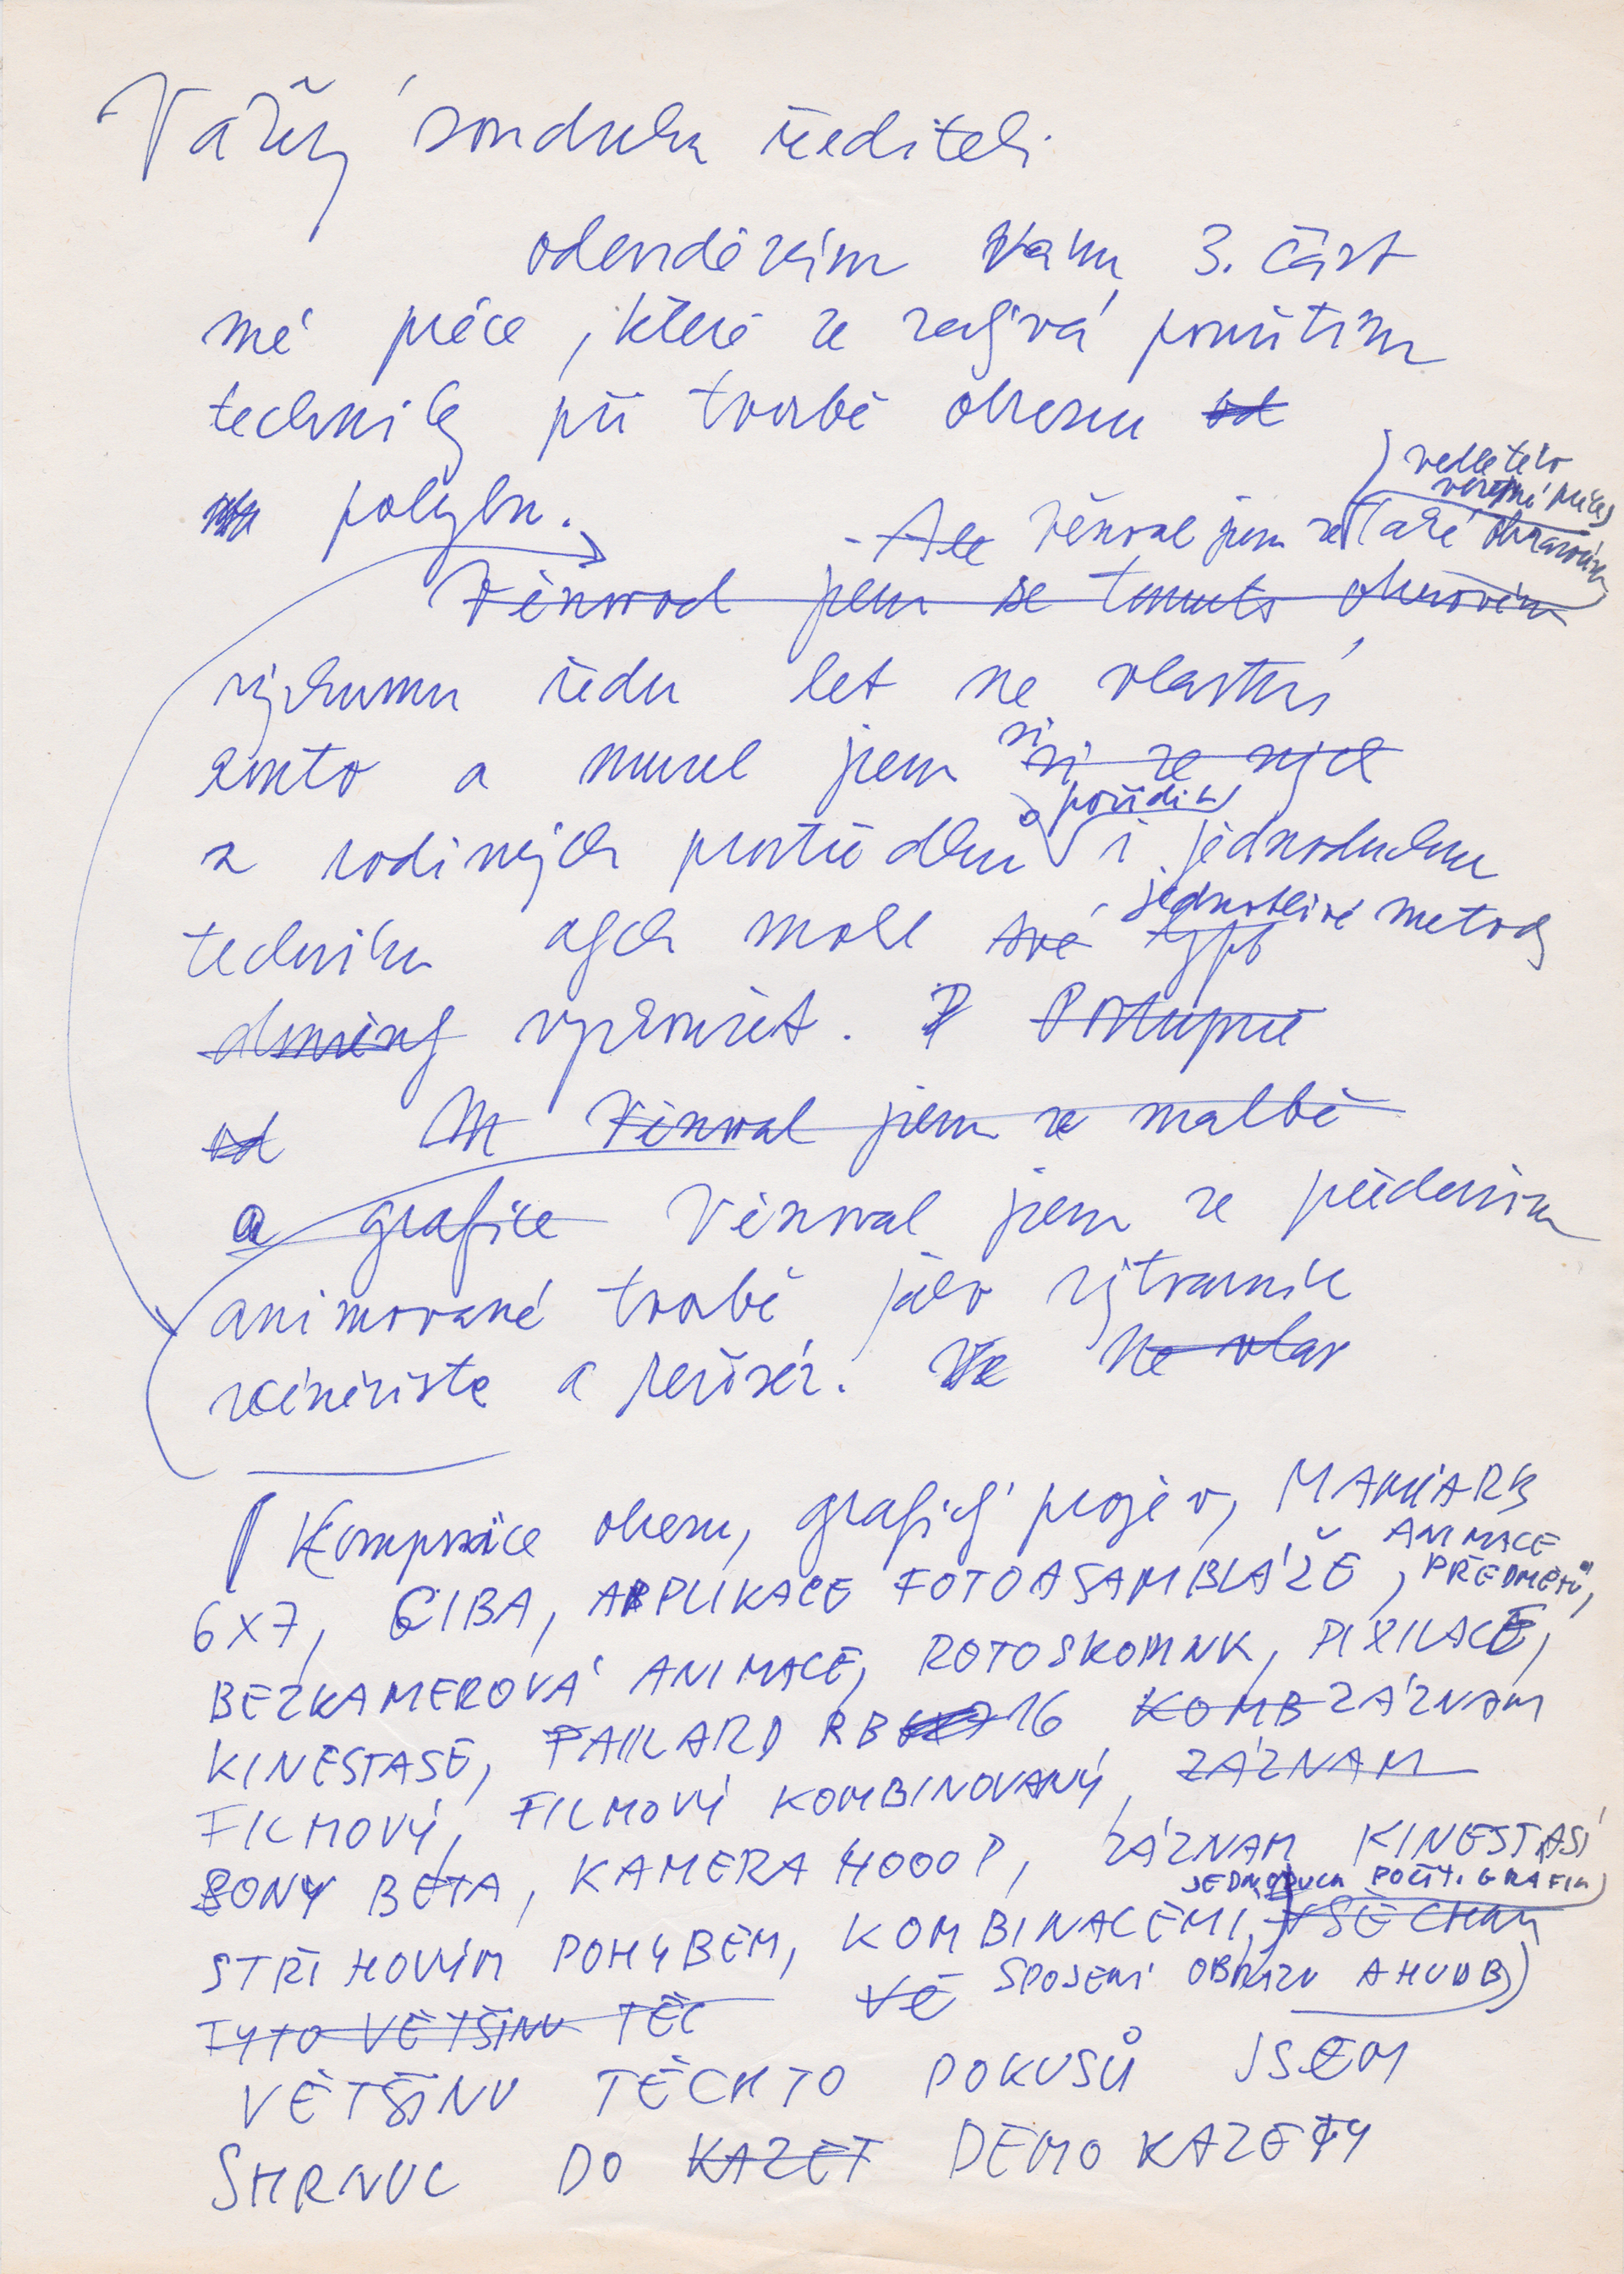 Vážený soudruhu řediteli
odevzdávám Vám 3. část
mé práce, která se zabývá použitím
techniky při tvorbě obrazu od
pohybu.
vedle této
výtvarné práce
- Ale věnoval jsem se také obrazovému
Věnoval jsem se tomuto obrazovém
výzkumu řadu let na vlastní
konto a musel jsem si si ze svých
z rodinných prostředků pořídit i jednoduchou
techniku abych mohl své typy jednotlivé metody
vyzkoušet. P Postupně
od Věnoval jsem se malbě
a grafice Věnoval jsem se především
animované tvorbě jako výtvarník
scénárista a režisér. Ne vlas
Kompozice obrazu, grafický projev, MAMIARB
6x7, CIBA, APLIKACE FOTOASAMBLÁŽE, ANIMACE PŘEDMĚTŮ,
BEZKAMEROVÁ ANIMACE, ROTOSKOPINK, PIXILACE,
KINESTASE, PAILARD RB 16, KOMB ZÁZNAM
FILMOVÝ, FILMOVÝ KOMBINOVANÝ, ZÁZNAM
SONY BETA, KAMERA 4000P, ZÁZNAM KINESTASÍ
JEDNODUCH POČÍT. GRAFIK
STŘIHOVÝM POHYBEM, KOMBINACEMI, VŠECHNY
TYTO VĚTŠINU TĚC VĚ SPOJENÍ OBRAZU A HUDBY
VĚTŠINU TĚCHTO POKUSŮ JSEM
SHRNUL DO KAZET DEMO KAZETY